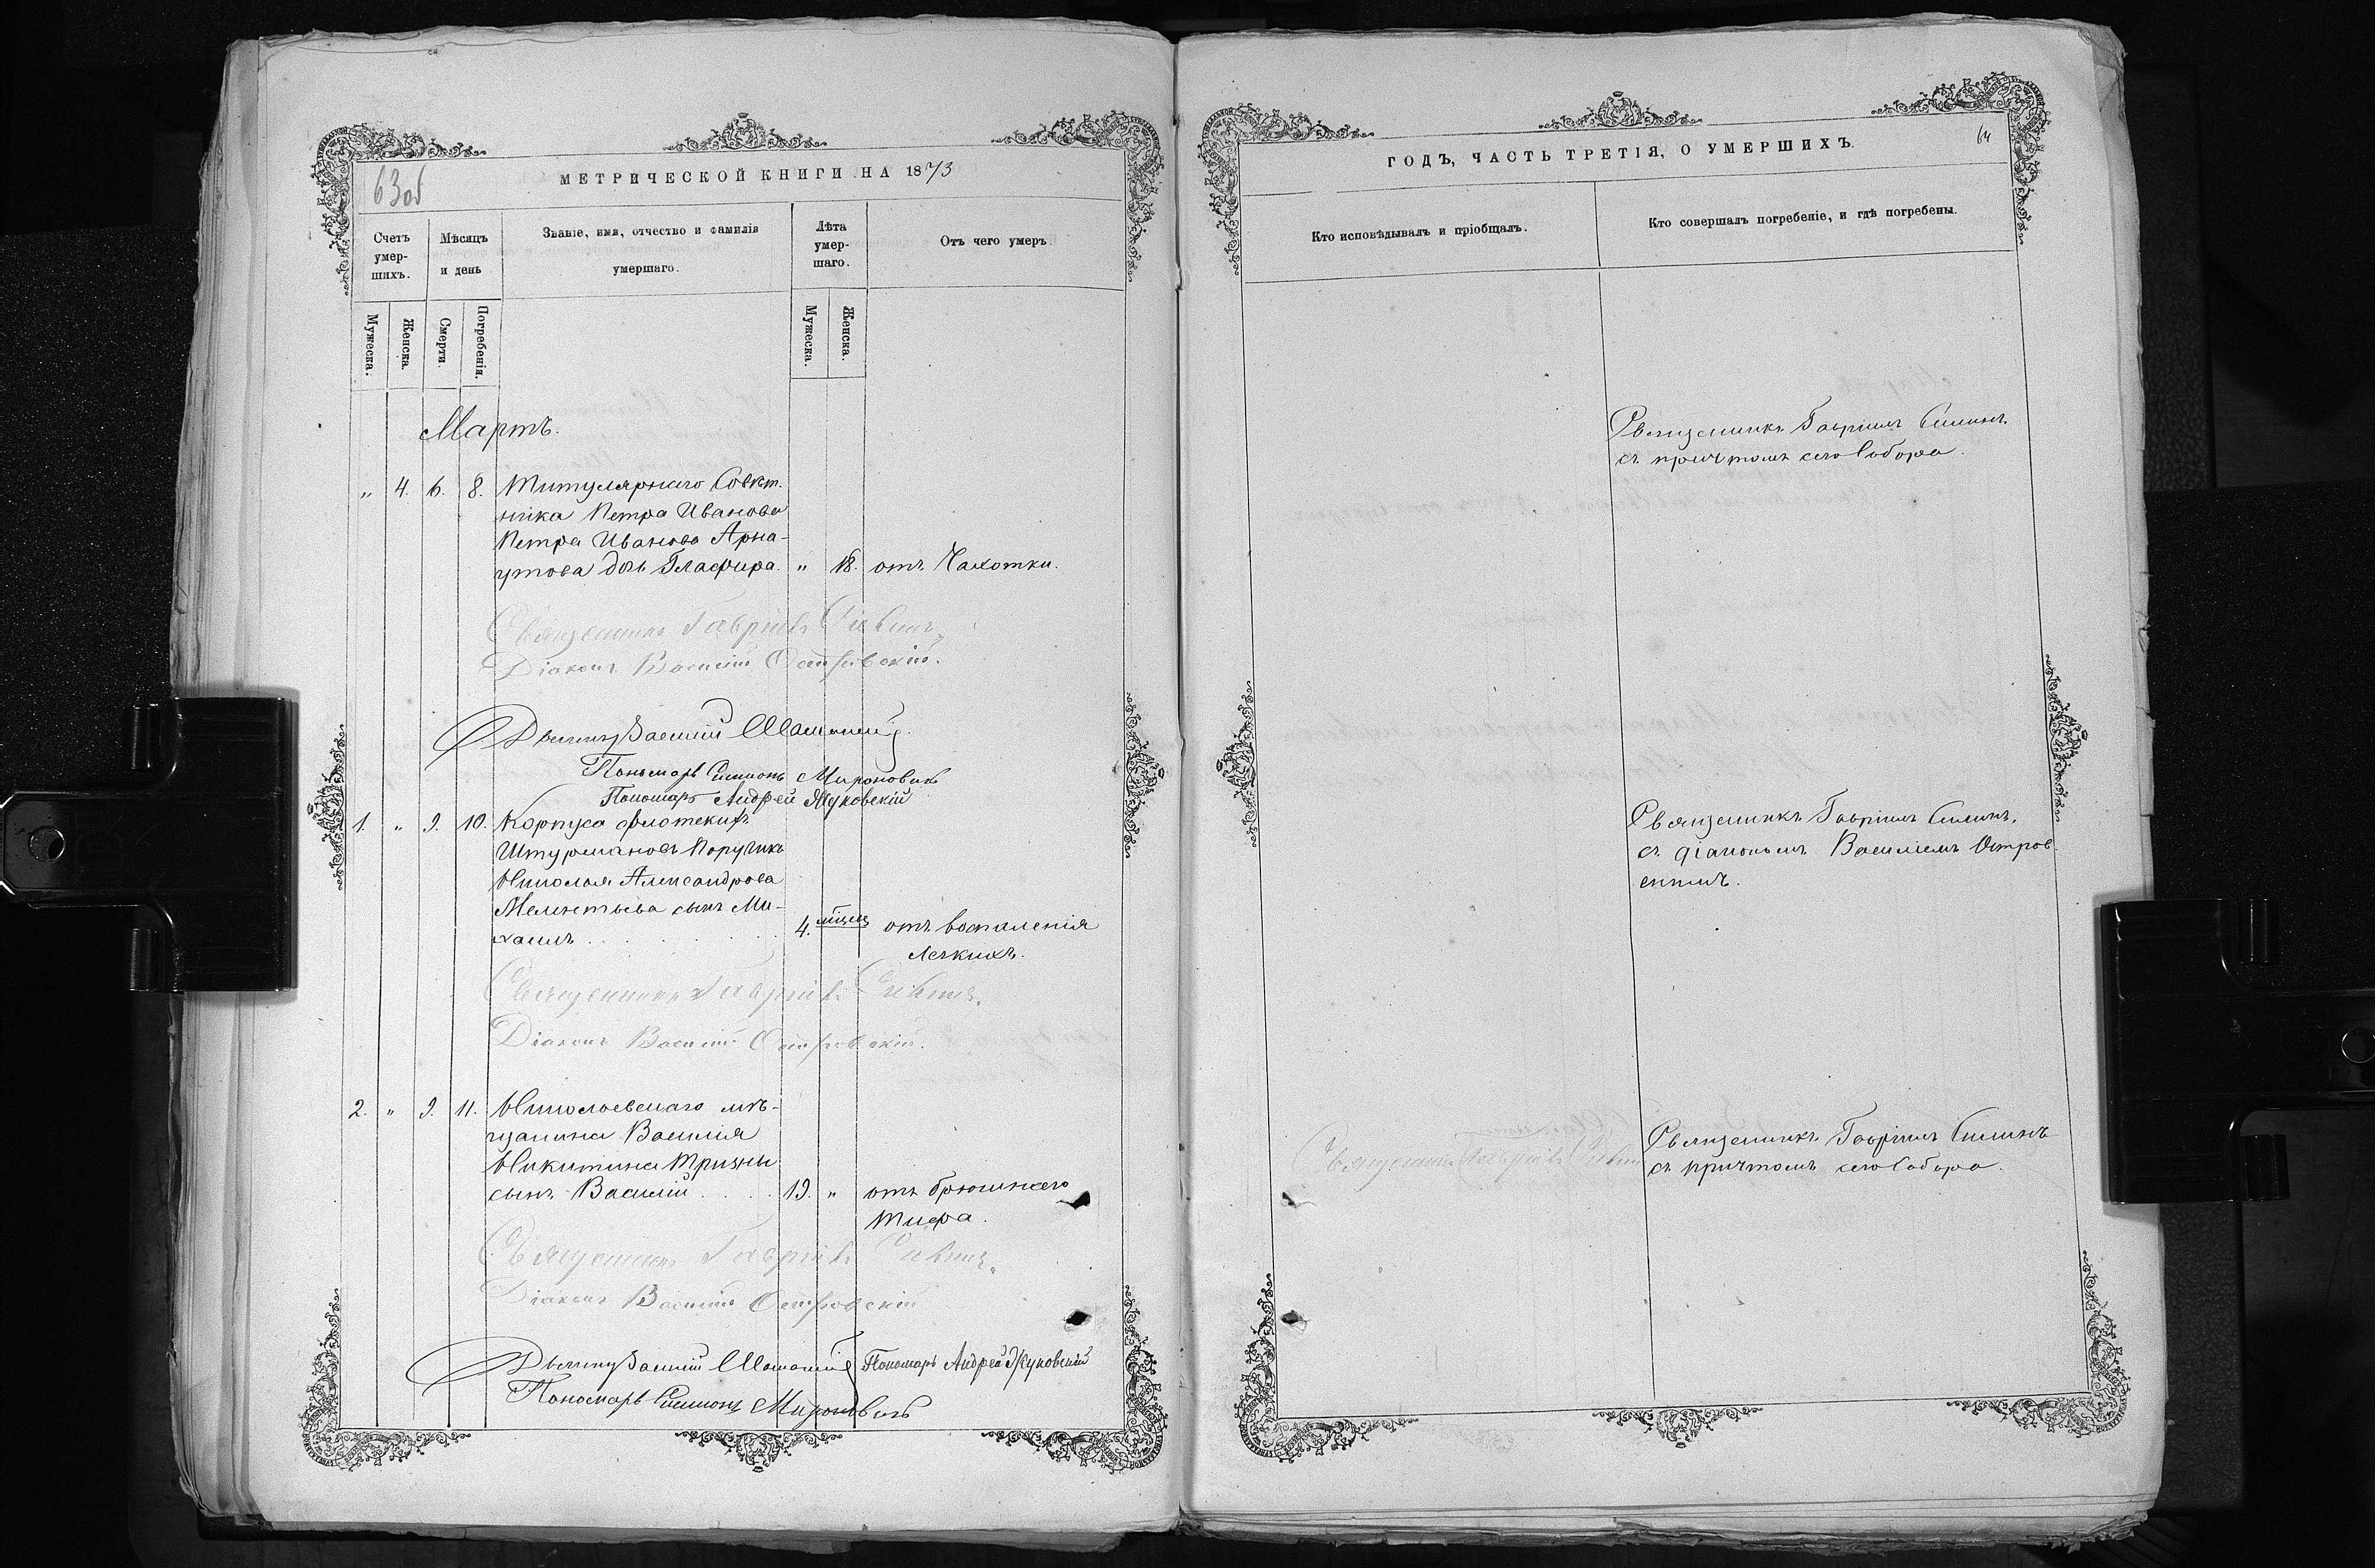 МЕТРИЧЕСКОЙ КНИГИ НА 1873
63об
Счетъ умер-шихъ.
Мѣсяцъ и день
Званіе, имя, отчество и фамилія умершаго.
Лѣта умер-шаго.
Отъ чего умеръ.
Мужеска.
Женска.
Смерти.
Погребенія.
Мужеска.
Женска.
Мартъ.
„ 4. 6. 8. Титулярнаго Совѣт-
ника Петра Иванова
Петра Иванова Арна-
утова дочь Глафира. „ 18. отъ Чахотки.
Священникъ Гавріилъ
Діаконъ Василій Островскій.
Василій
Пономарь Симеонъ Мироновичъ
Пономарь Андрей Жуковскій
1. „ 9. 10. Корпуса флотскихъ
Штурмановъ Поручика
Николая Александрова
Мелентьева сынъ Ми-
хаилъ 4. мѣсяц отъ воспаленія
легкихъ.
Священникъ Гавріилъ
Діаконъ Василій Островскій.
2. „ 9. 11. Николаевскаго мѣ-
щанина Василія
Никитина Тризны
сынъ Василій 19. „ отъ брюшнаго
тифа.
Священникъ Гавріилъ
Діаконъ Василій Островскій
Василій Пономарь Андрей Жуковскій
Пономарь Симеонъ Мироновичъ
ГОДЪ, ЧАСТЬ ТРЕТІЯ, О УМЕРШИХЪ.
64
Кто исповѣдывалъ и пріобщалъ.
Кто совершалъ погребеніе, и гдѣ погребены.
Священникъ Гавріилъ
съ причтомъ сего Собора.
Священникъ Гавріилъ
съ діакономъ Василіемъ Остров-
скимъ.
Священникъ Гавріилъ
Священникъ Гавріилъ
съ причтомъ сего Собора.